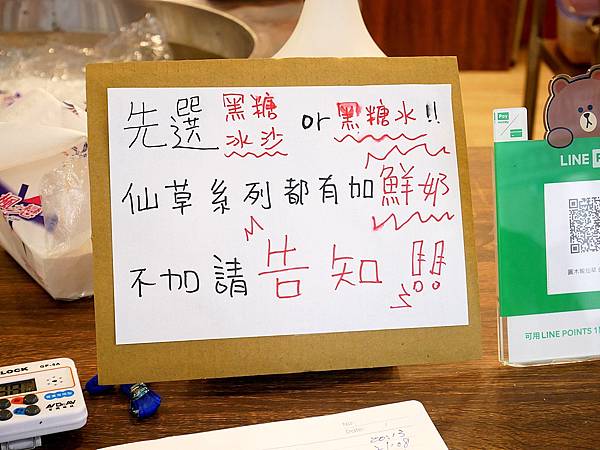 先選 黑糖冰沙 or 黑糖水!!
仙草系列都有加鮮奶
不加請告知!!!
Pay
LINE P
可用 LINE POINTS 1
LOCK GP-4A
No:
Date: